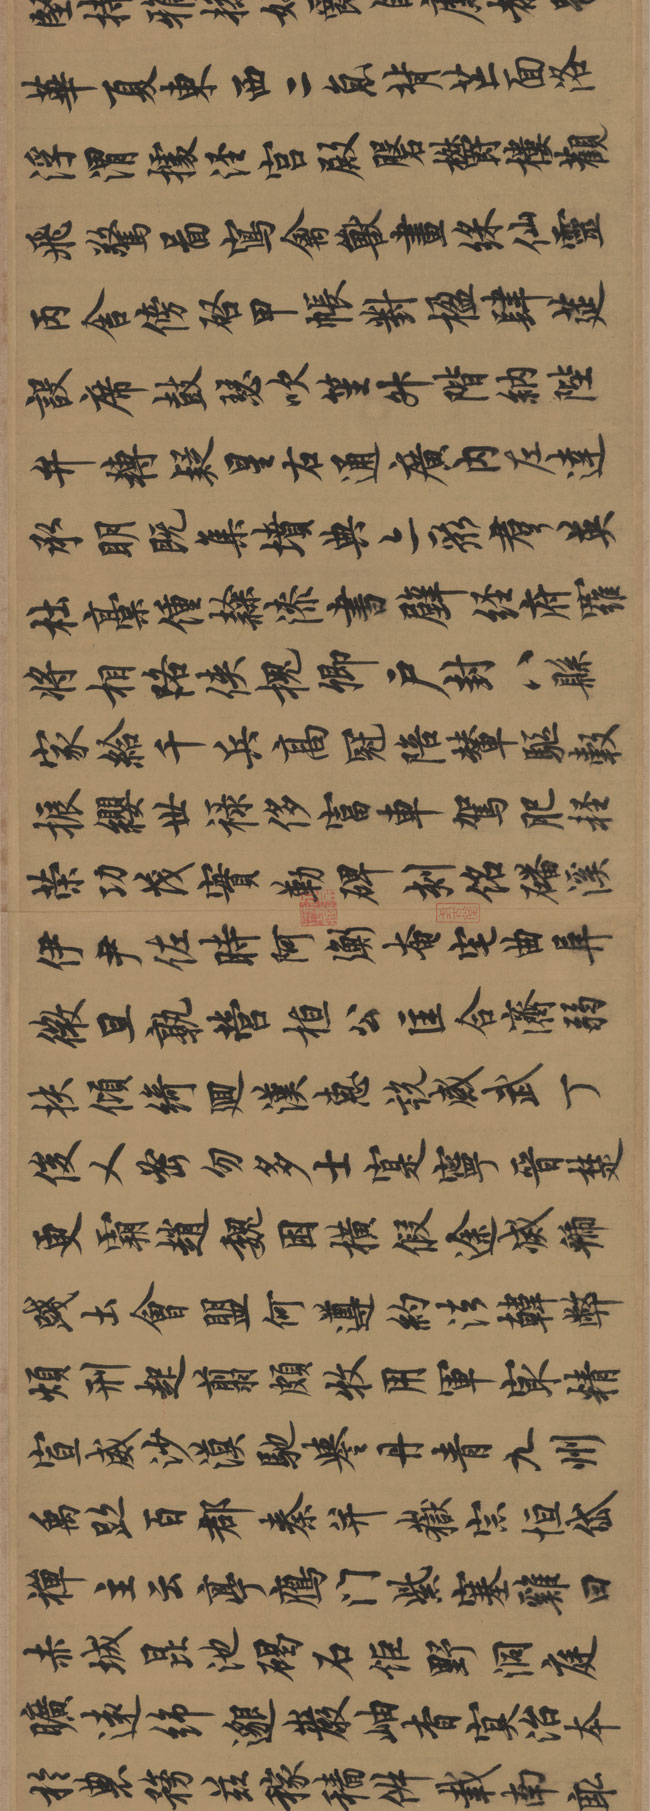 堅持雅操好爵自縻都邑
華夏東西二京背芒面洛
浮渭據涇宮殿盤鬱樓觀
飛驚圖寫禽獸畫綵仙靈
丙舍傍啓甲帳對楹肆筵
設席鼓瑟吹笙升階納陛
弁轉疑星右通廣內左達
承明既集墳典亦聚群英
杜稾鍾隸漆書壁經府羅
將相路俠槐卿戶封八縣
家給千兵高冠陪輦驅轂
振纓世祿侈富車駕肥輕
策功茂實勒碑刻銘磻溪
伊尹佐時阿衡奄宅曲阜
微旦孰營桓公匡合濟弱
扶傾綺迴漢惠說感武丁
俊乂密勿多士寔寧晉楚
更霸趙魏困橫假途滅虢
踐土會盟何遵約法韓弊
煩刑起翦頗牧用軍最精
宣威沙漠馳譽丹青九州
禹跡百郡秦并嶽宗恒岱
禪主云亭鴈門紫塞雞田
赤城昆池碣石鉅野洞庭
曠遠綿邈巖岫杳冥治本
於農務茲稼穡俶載南畝